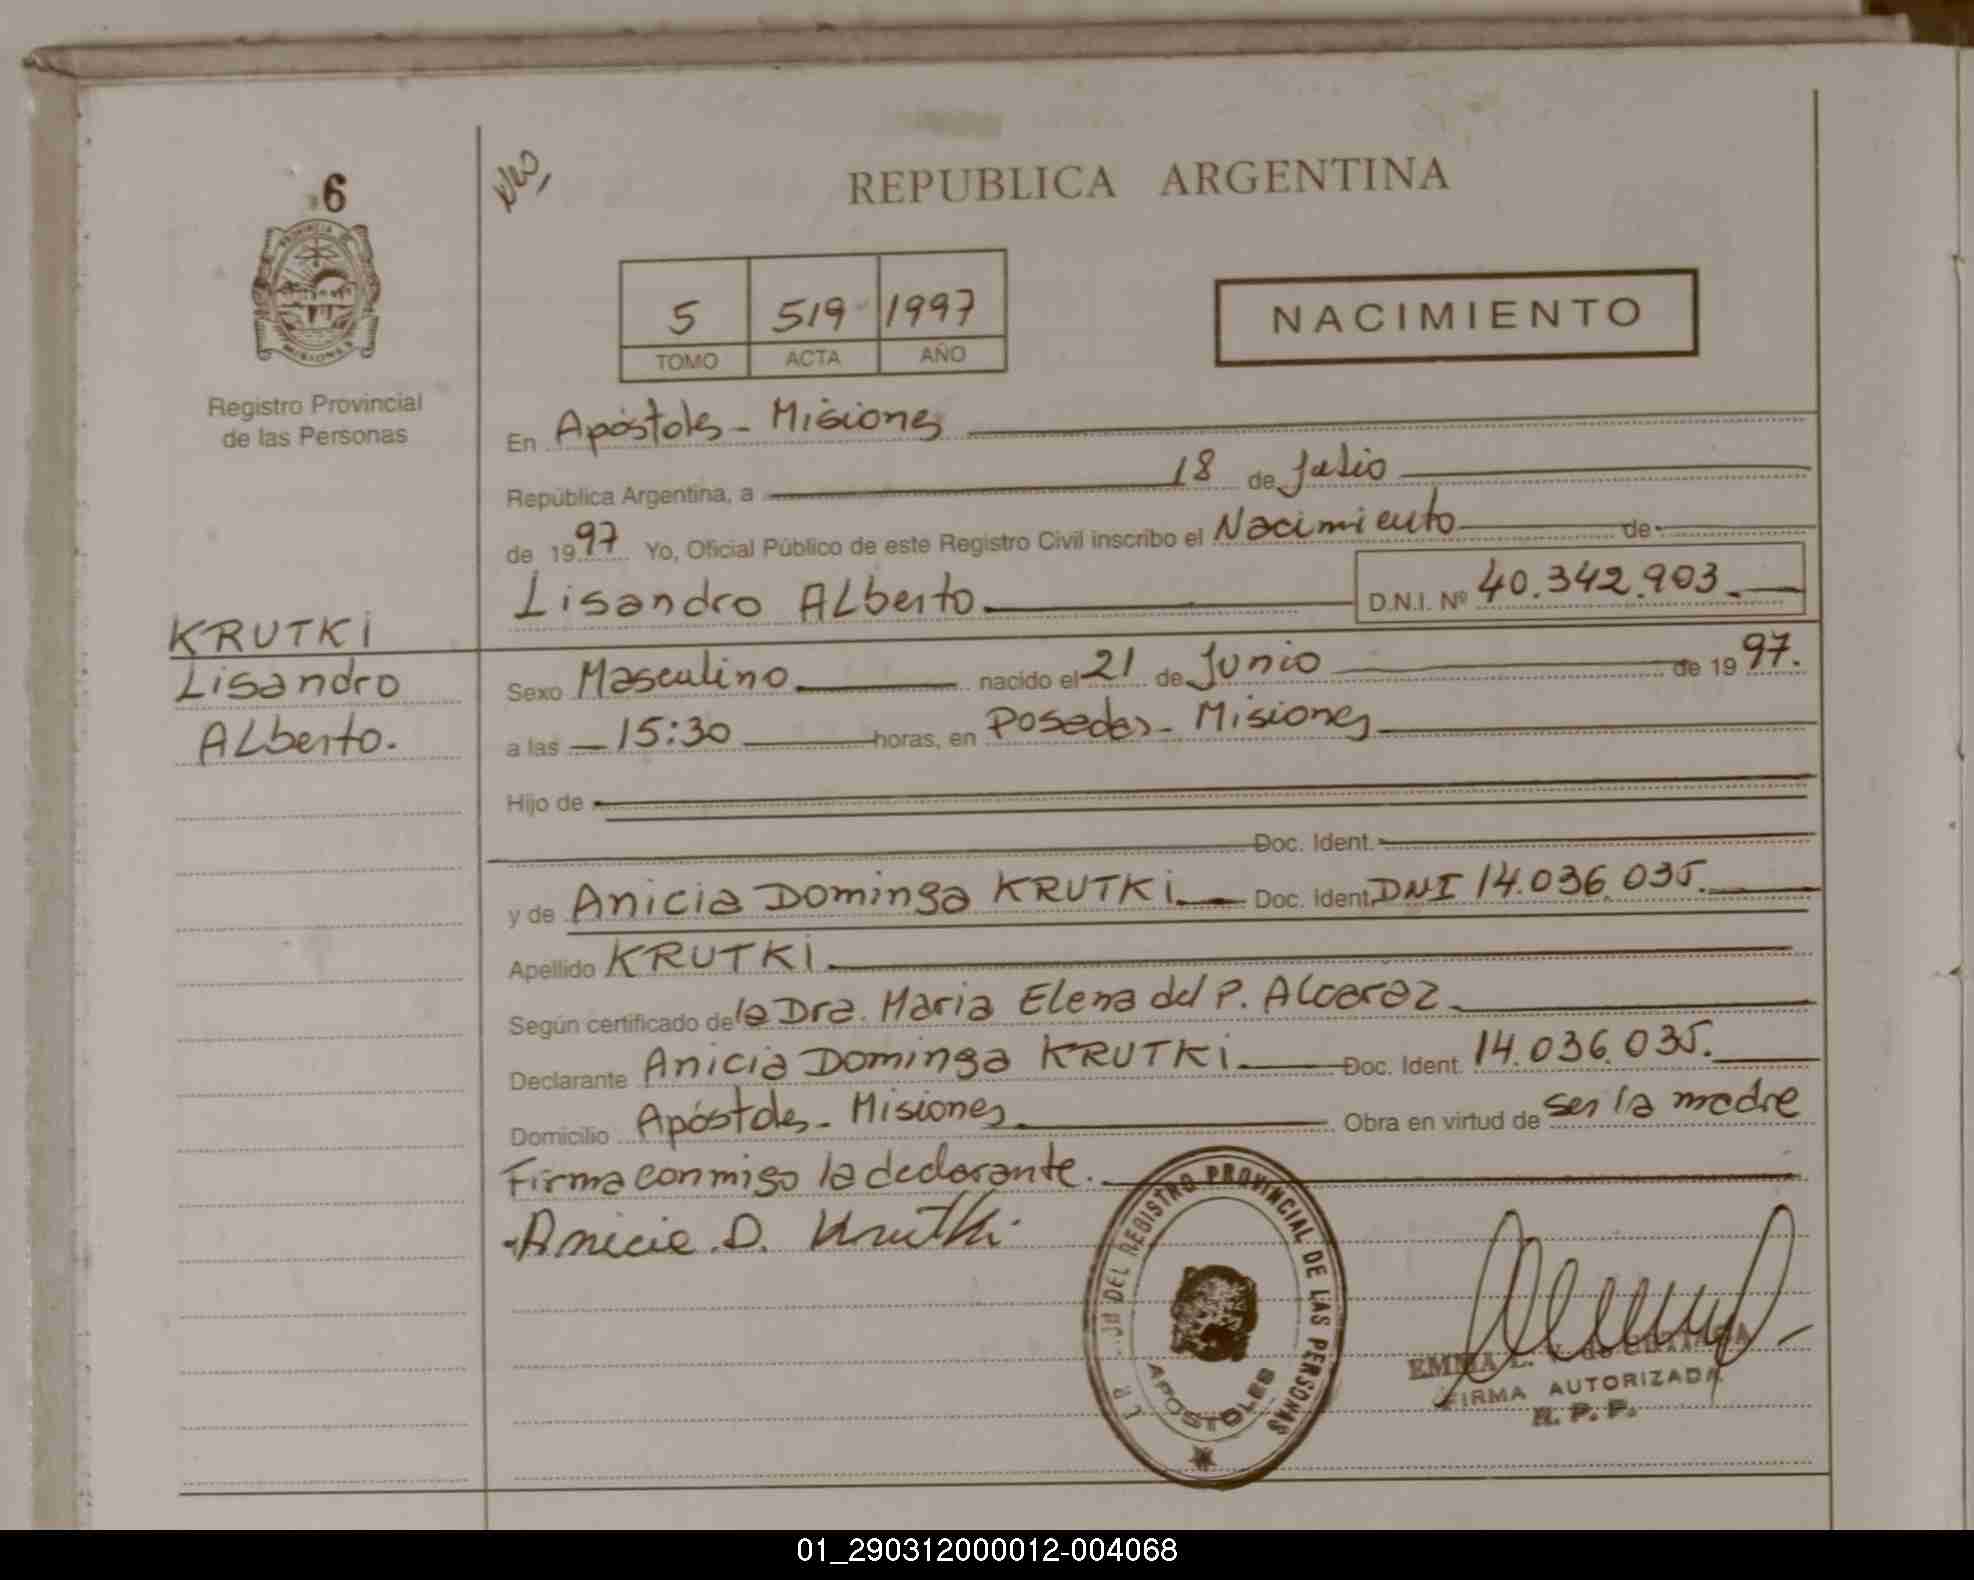 6
REPUBLICA ARGENTINA
PROVINCIA DE
MISIONES
Registro Provincial
de las Personas
5 519 1997
TOMO ACTA AÑO
NACIMIENTO
En Apóstoles - Misiones
República Argentina, a 18 de Julio
de 1997 Yo, Oficial Público de este Registro Civil inscribo el Nacimiento de
Lisandro ALberto D.N.I. Nº 40.342.903.
KRUTKi
Lisandro
ALberto.
Sexo Masculino nacido el 21 de Junio de 1997.
a las 15:30 horas, en Posadas - Misiones
Hijo de
Doc. Ident.
y de Anicia Dominga KRUTKi Doc. Ident. DNI 14.036.035.
Apellido KRUTKi
Según certificado de la Dra. Maria Elena del P. Alcaraz
Declarante Anicia Dominga KRUTKi Doc. Ident. 14.036.035.
Domicilio Apóstoles - Misiones Obra en virtud de ser la madre
Firma conmigo la declarante.
Anicia D. Krutki
DEL REGISTRO PROVINCIAL DE LAS PERSONAS
APOSTOLES
EMMA L. V. de
FIRMA AUTORIZADA
R. P. P.
01_290312000012-004068